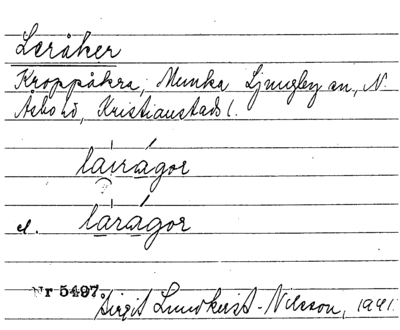 Leråker
Kroppåkra, Munka Ljungby sn, N.
Åsbo hd, Kristianstads l.
láirágor
el. lárágor
Nr 5497.
Birgit Lundkvist-Nilsson, 1941.